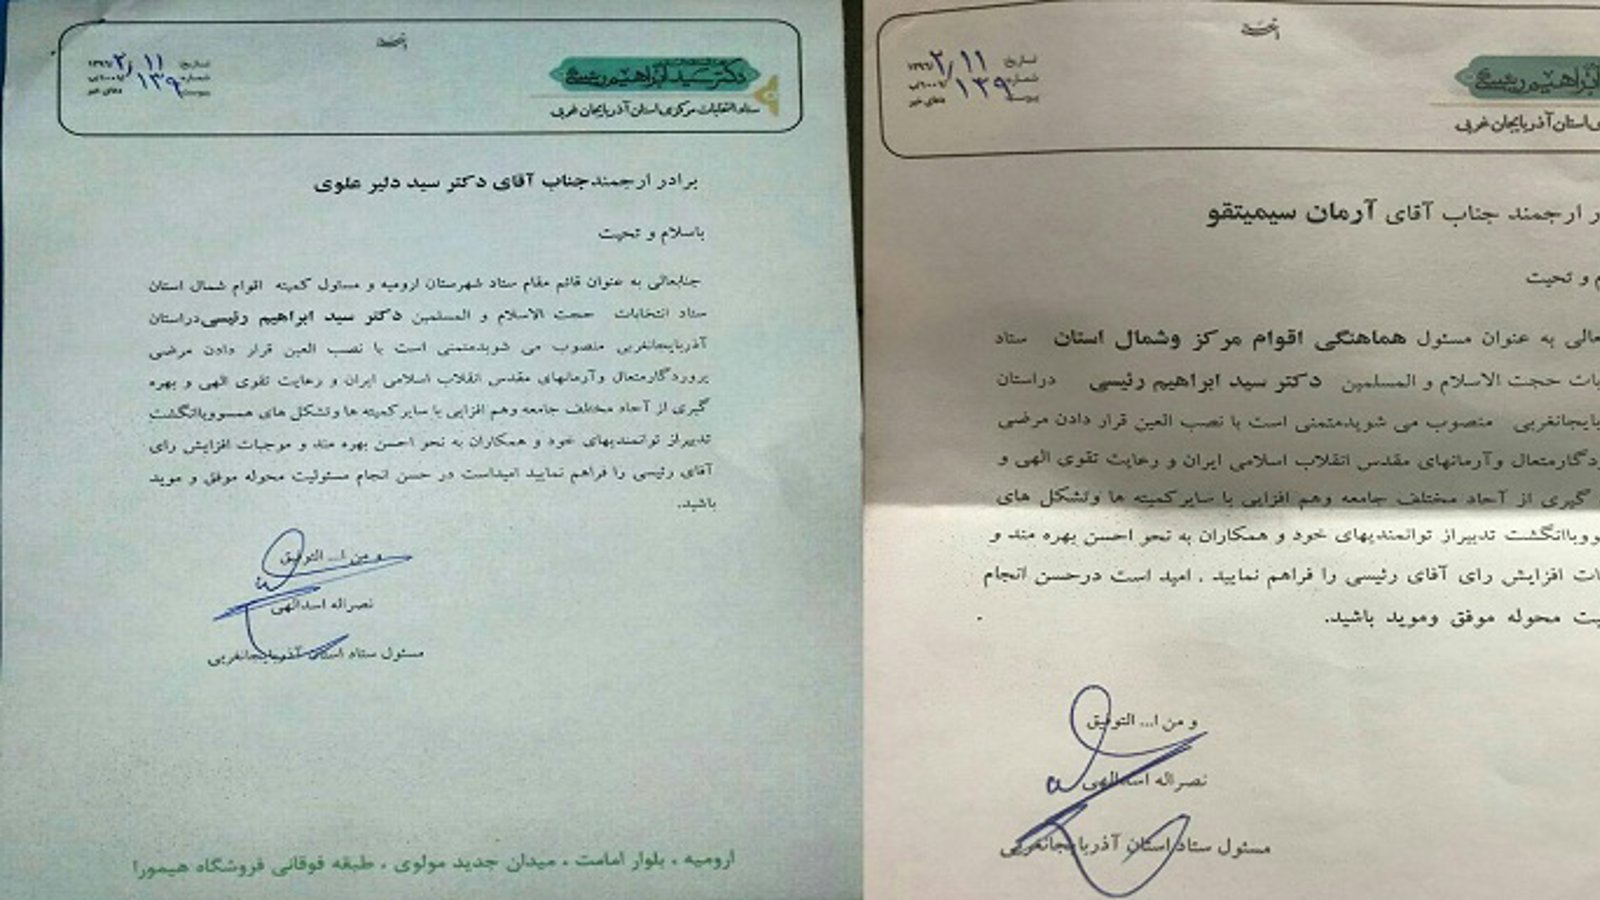 دکتر سید ابراهیم رئیسی
ستاد انتخابات مرکزی استان آذربایجان غربی
تاریخ: ۱۳۹۶/۲/۱۱
شماره: ۱۳۹
پیوست:
برادر ارجمندجناب آقای دکتر سید دلیر علوی
باسلام و تحیت
جنابعالی به عنوان قائم مقام ستاد شهرستان ارومیه و مسئول کمیته اقوام شمال استان
ستاد انتخابات حجت الاسلام و المسلمین دکتر سید ابراهیم رئیسی دراستان
آذربایجانغربی منصوب می شویدمتمنی است با نصب العین قرار دادن مرضی
پروردگارمتعال وآرمانهای مقدس انقلاب اسلامی ایران و رعایت تقوی الهی و بهره
گیری از آحاد مختلف جامعه وهم افزایی با سایرکمیته ها وتشکل های همسووباانگشت
تدبیراز توانمندیهای خود و همکاران به نحو احسن بهره مند و موجبات افزایش رای
آقای رئیسی را فراهم نمایید امیداست در حسن انجام مسئولیت محوله موفق و موید
باشید.
و من ا... التوفیق
نصراله اسدالهی
مسئول ستاد استان آذربایجانغربی
ارومیه ، بلوار امامت ، میدان جدید مولوی ، طبقه فوقانی فروشگاه هیمورا
ابراهیم رئیسی
ی استان آذربایجان غربی
تاریخ: ۱۳۹۶/۲/۱۱
شماره: ۱۳۹
پیوست:
در ارجمند جناب آقای آرمان سیمیتقو
م و تحیت
عالی به عنوان مسئول هماهنگی اقوام مرکز وشمال استان ستاد
بات حجت الاسلام و المسلمین دکتر سید ابراهیم رئیسی دراستان
بایجانغربی منصوب می شویدمتمنی است با نصب العین قرار دادن مرضی
ردگارمتعال وآرمانهای مقدس انقلاب اسلامی ایران و رعایت تقوی الهی و
گیری از آحاد مختلف جامعه وهم افزایی با سایرکمیته ها وتشکل های
سووباانگشت تدبیراز توانمندیهای خود و همکاران به نحو احسن بهره مند و
ات افزایش رای آقای رئیسی را فراهم نمایید . امید است درحسن انجام
یت محوله موفق وموید باشید.
و من ا... التوفیق
نصراله اسدالهی
مسئول ستاد استان آذربایجانغربی